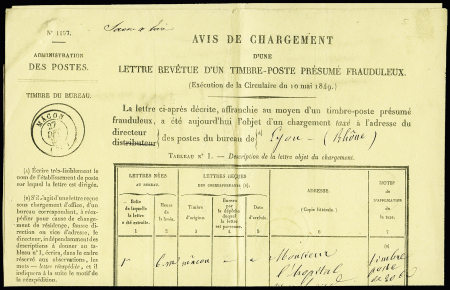 N° 1107.
Saone & Loire
ADMINISTRATION
DES POSTES.
TIMBRE DU BUREAU.
MACON
27
AVIS DE CHARGEMENT
D'UNE
LETTRE REVÊTUE D'UN TIMBRE-POSTE PRÉSUMÉ FRAUDULEUX.
(Exécution de la Circulaire du 10 mai 1849.)
La lettre ci-après décrite, affranchie au moyen d'un timbre-poste présumé
frauduleux, a été aujourd'hui l'objet d'un chargement taxé à l'adresse du
directeur
distributeur
des postes du bureau de Lyon (Rhône)
TABLEAU N° I. — Description de la lettre objet du chargement.
(1) Écrire très-lisiblement le
nom de l'établissement de poste
sur lequel la lettre est dirigée.
(2) S'il s'agit d'une lettre reçue
sous chargement d'office, d'un
bureau correspondant, à réexpédier
pour cause de changement
de résidence, fausse direction
ou vice d'adresse, le
directeur, indépendamment des
descriptions à donner au tableau
n° 1, écrira, dans le cadre
réservé aux observations, les
mots « lettre réexpédiée, » et il
indiquera à la suite le motif de
la réexpédition.
LETTRES NÉES
AU BUREAU.
LETTRES REÇUES
DES CORRESPONDANTS (2).
ADRESSE.
(Copie littérale.)
Boîte
de laquelle
la lettre
a été extraite.
Heure
de la levée.
Timbre
d'origine.
Date
d'origine.
1 2 3 4 5 6 7
mâcon
Monsieur
l'hopital
timbre
poste